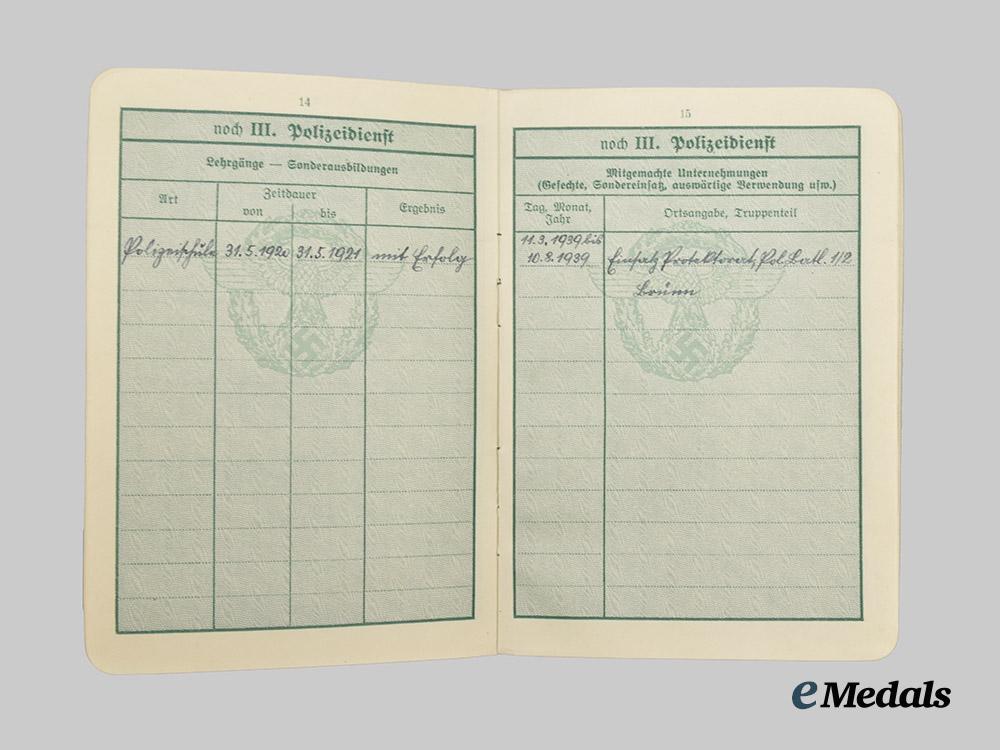 14
noch III. Polizeidienst
Lehrgänge — Sonderausbildungen
Art
Zeitdauer
von
bis
Ergebnis
Polizeischule 31.5.1920 31.5.1921 mit Erfolg
15
noch III. Polizeidienst
Mitgemachte Unternehmungen
(Gefechte, Sondereinsatz, auswärtige Verwendung usw.)
Tag, Monat,
Jahr
Ortsangabe, Truppenteil
11.3.1939 bis
10.8.1939 Einsatz Protektorat, Pol. Batl. 1/2
Brünn
eMedals